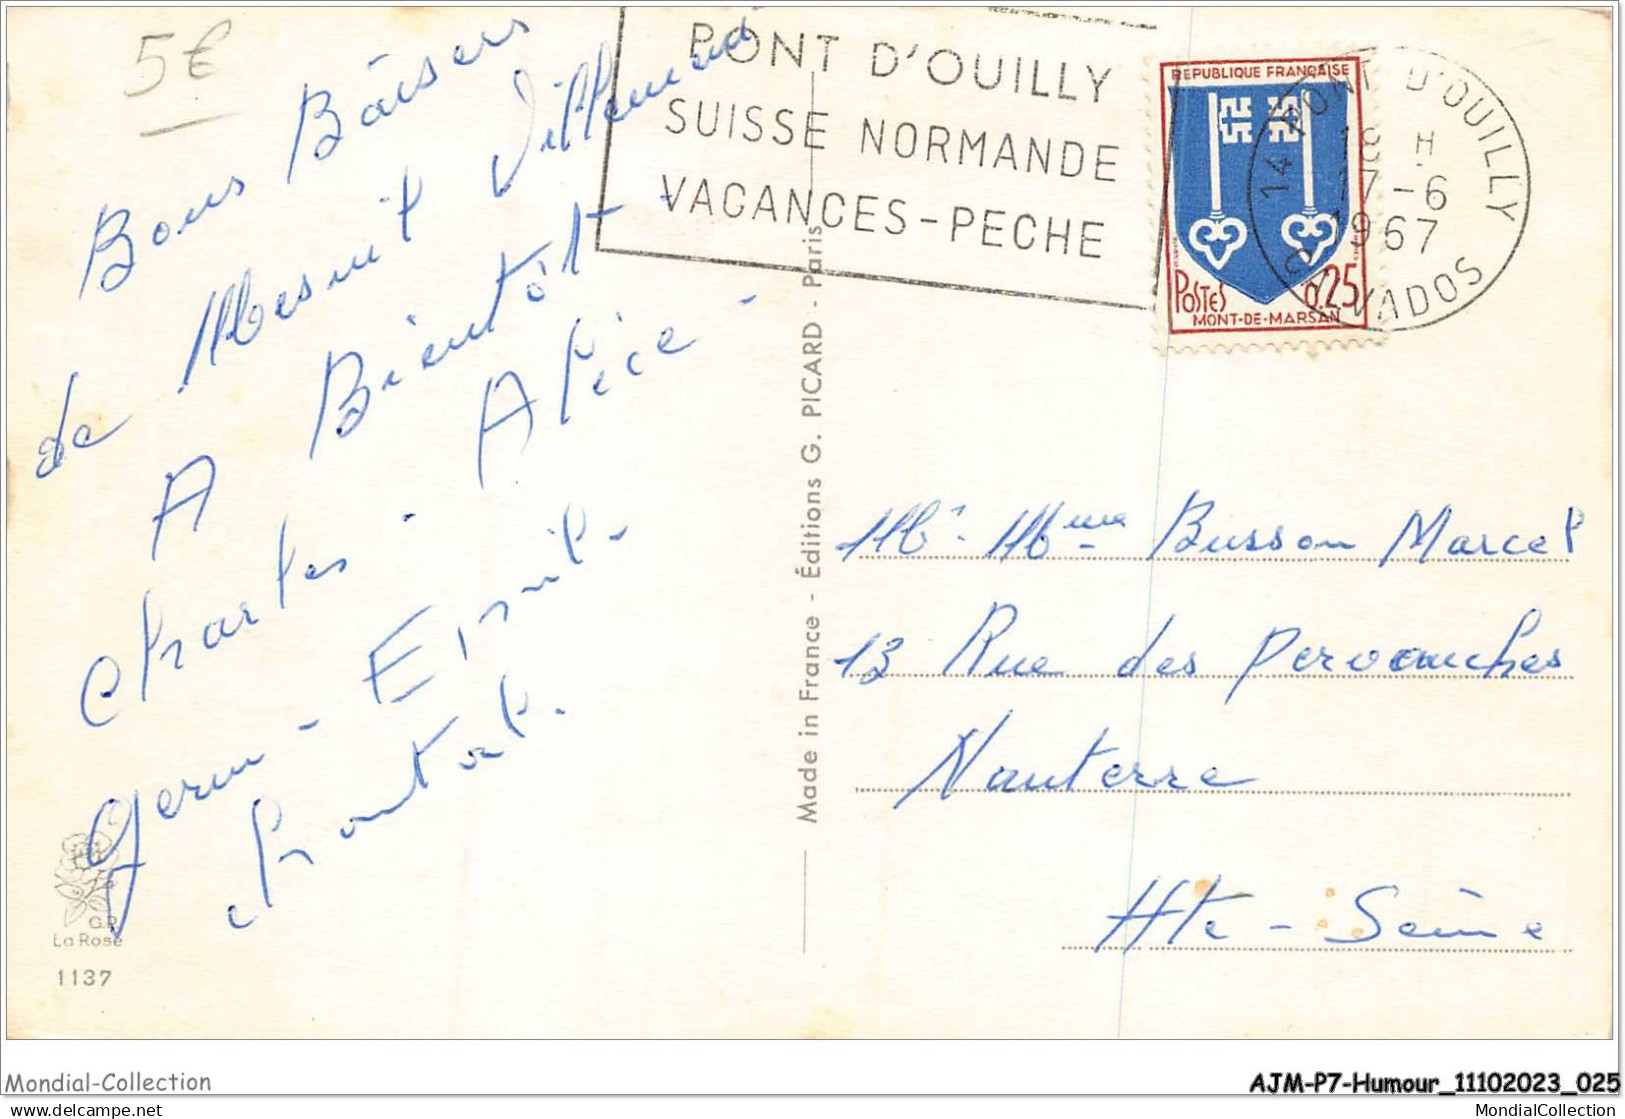 5€
Bons Baisers
de Mesnil Villement
A Bientôt -
Charles - Alice -
Germ -
Chantal.
G.P.
La Rose
1137
Made in France - Éditions G. PICARD - Paris
PONT D'OUILLY
SUISSE NORMANDE
VACANCES-PECHE
REPUBLIQUE FRANÇAISE
POSTES 0.25
MONT-DE-MARSAN
14 PONT D'OUILLY
18 H
17-6
1967
CALVADOS
Mr. Mme Busson Marcel
13 Rue des Pervenches
Nanterre
Hte - Seine
Mondial-Collection
AJM-P7-Humour_11102023_025
www.delcampe.net
MondialCollection